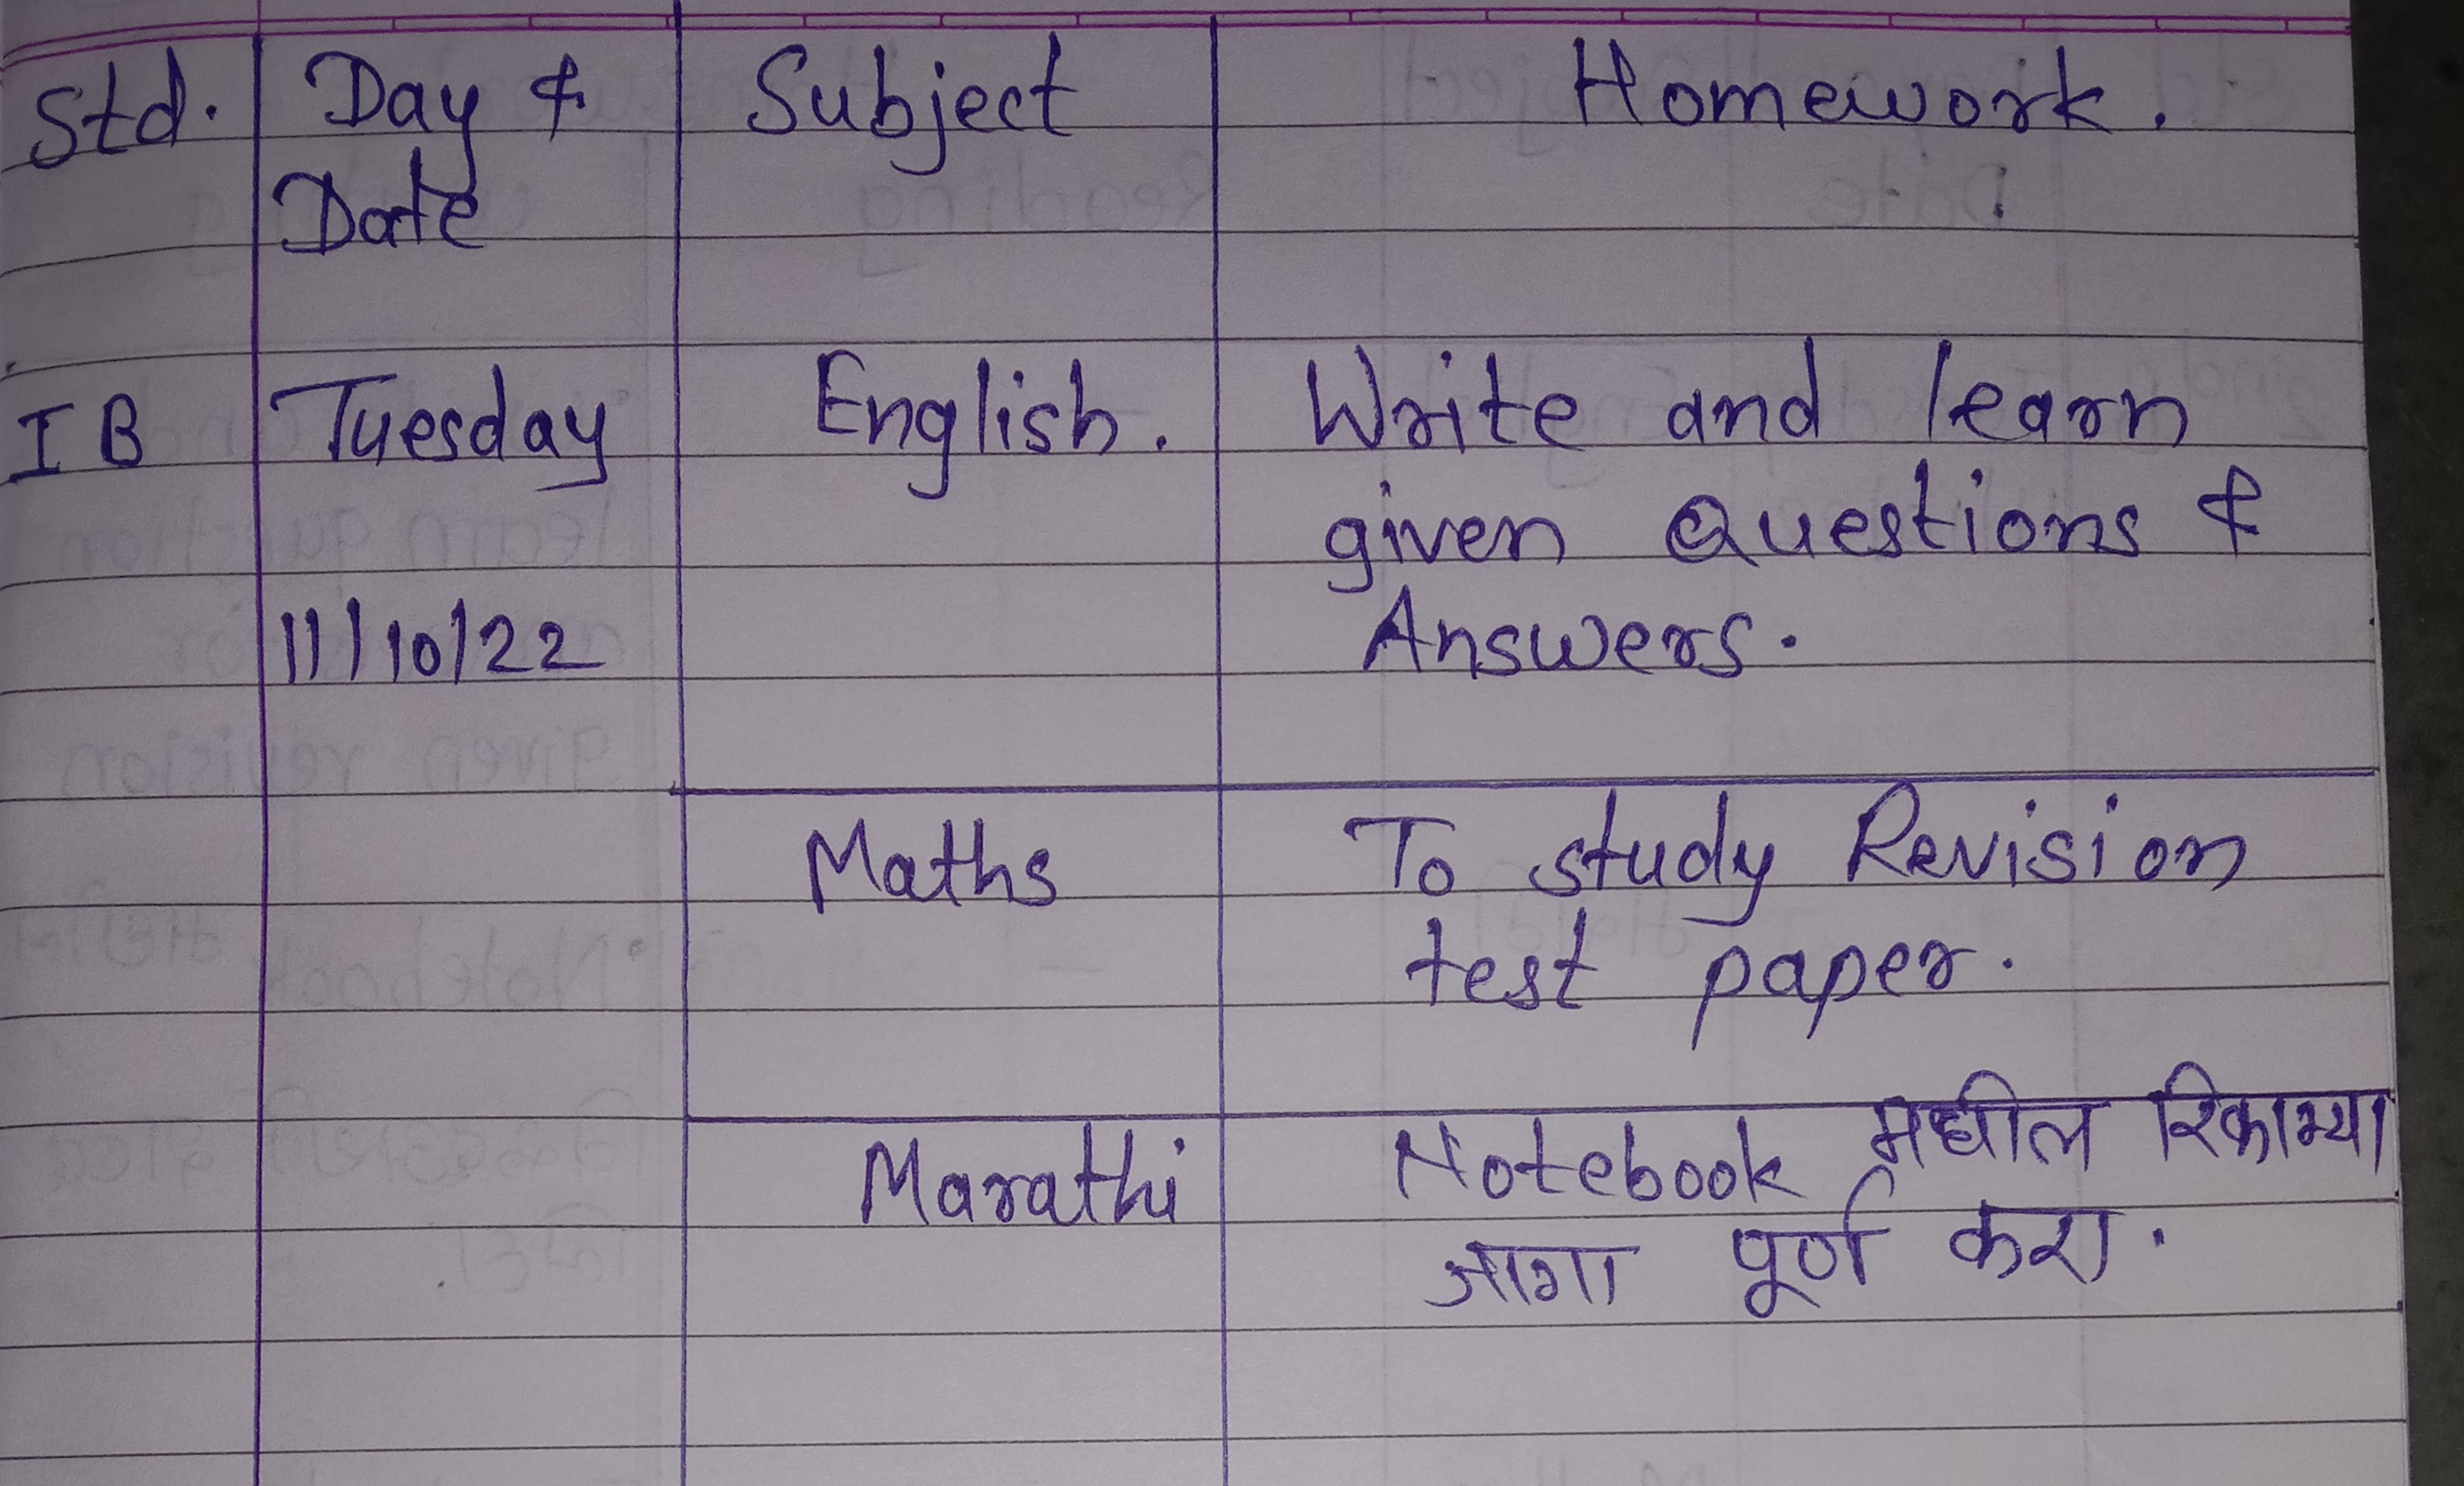 Std. Day & Subject Homework.
Date
I B Tuesday English. Write and learn
given Questions &
11/10/22 Answers.
Maths To study Revision
test paper.
Marathi Notebook मधील रिकाम्या
जागा पूर्ण करा.